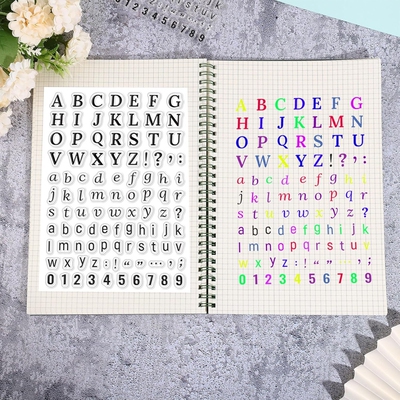 A B C D E F G
H I J K L M N
O P Q R S T U
V W X Y Z ! ? ' , :
a b c d e f g h i
j k l m n o p q r
s t u v w x y z ?
a b c d e f g h i j k
l m n o p q r s t u v
w x y z : ! “ ” … ' ;
0 1 2 3 4 5 6 7 8 9
A B C D E F G
H I J K L M N
O P Q R S T U
V W X Y Z ! ? ' , :
a b c d e f g h i
j k l m n o p q r
s t u v w x y z ?
a b c d e f g h i j k
l m n o p q r s t u v
w x y z : ! “ ” … ' ;
0 1 2 3 4 5 6 7 8 9